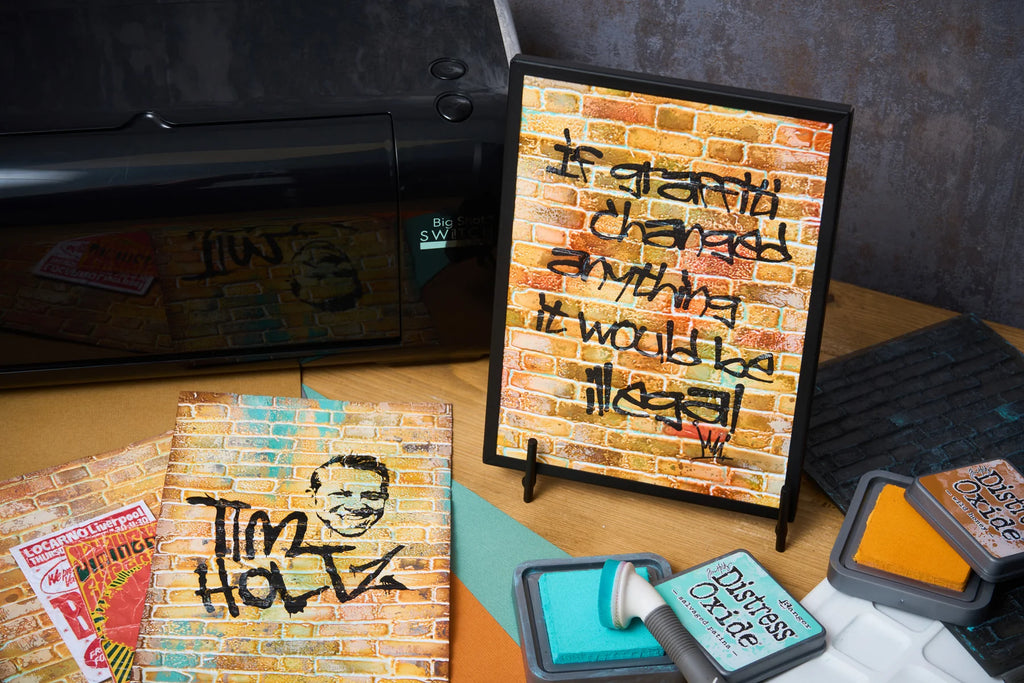 Big Shot
SWITCH
If graffiti
changed
anything
it would be
illegal
TIM
HOLTZ
LOCARNO Liverpool
Distress
Oxide
Ranger
Distress
Oxide
- salvaged patina -